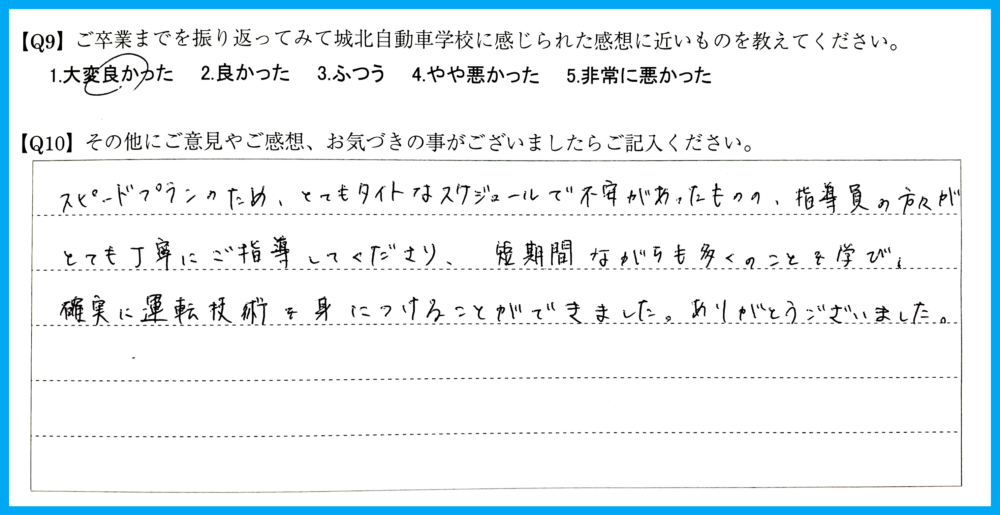 【Q9】ご卒業までを振り返ってみて城北自動車学校に感じられた感想に近いものを教えてください。
1.大変良かった 2.良かった 3.ふつう 4.やや悪かった 5.非常に悪かった
【Q10】その他にご意見やご感想、お気づきの事がございましたらご記入ください。
スピードプランのため、とてもタイトなスケジュールで不安があったものの、指導員の方々が
とても丁寧にご指導してくださり、短期間ながらも多くのことを学び、
確実に運転技術を身につけることができました。ありがとうございました。